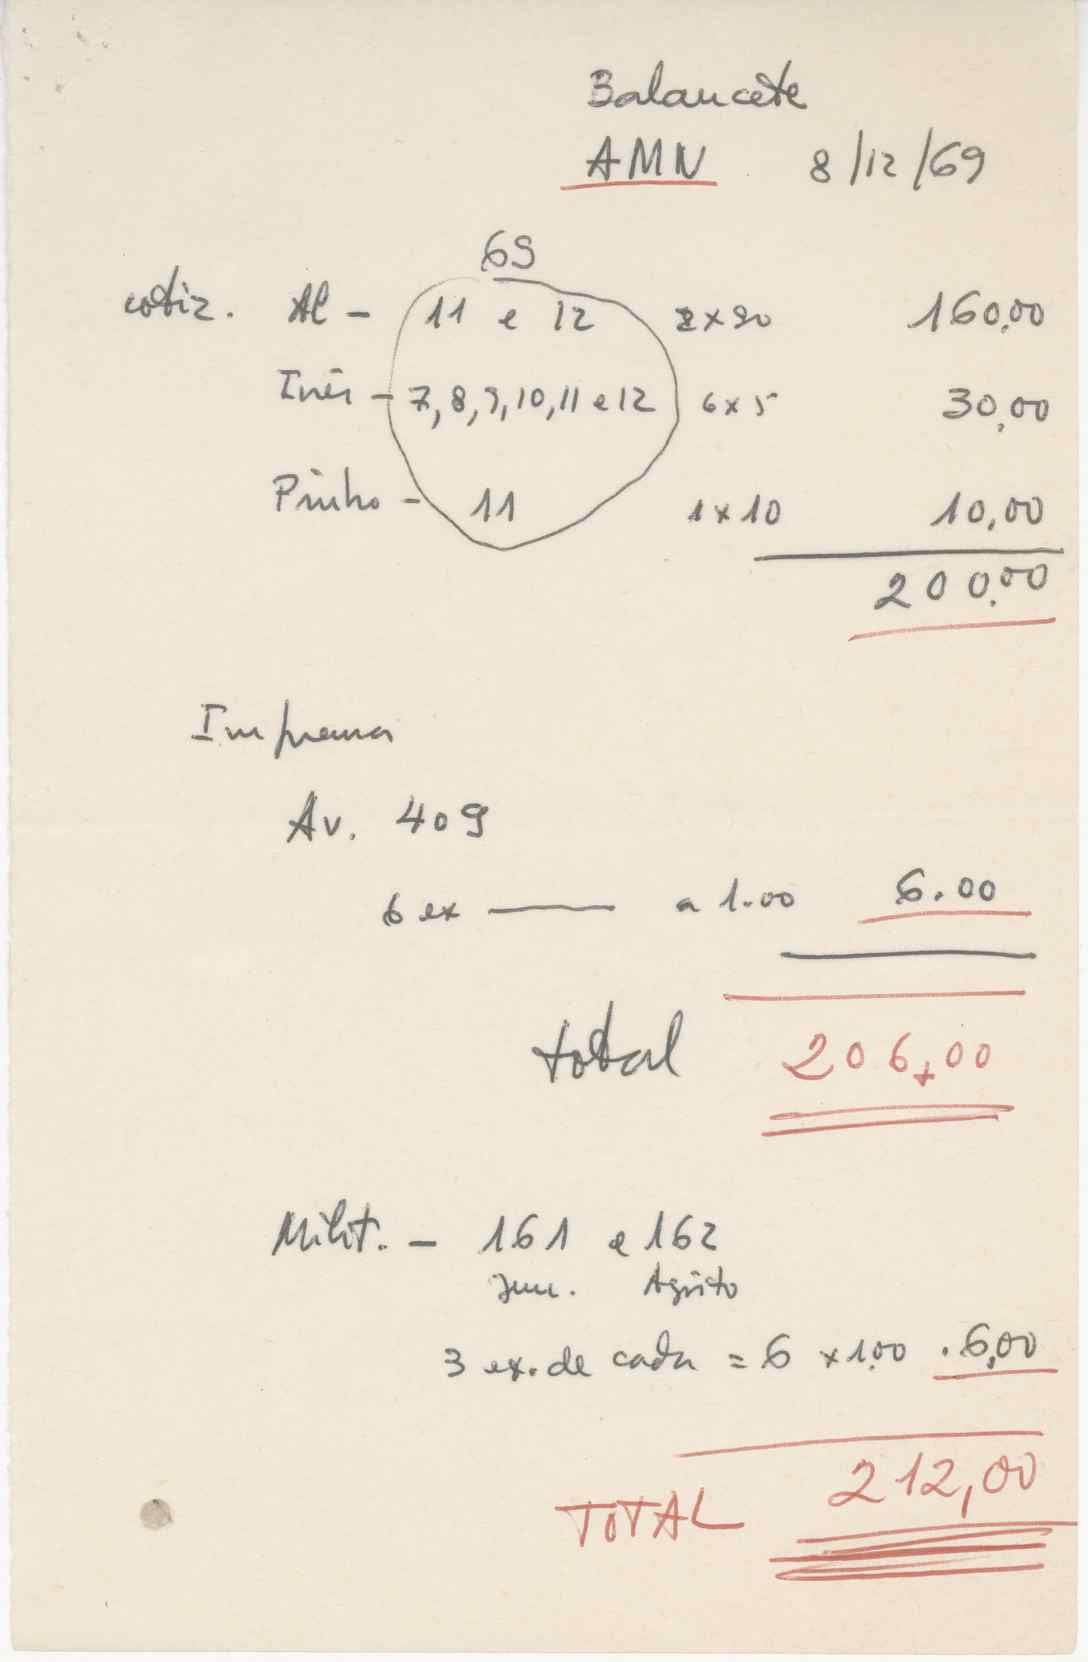 Balancete
AMN 8/12/69
69
cotiz. Al - 11 e 12 2x80 160,00
Inês - 7,8,9,10,11 e 12 6x5 30,00
Pinho - 11 1x10 10,00
200,00
Imprensa
Av. 409
6 ex —— a 1.00 6.00
total 206,00
Milit. - 161 e 162
Jun. Agosto
3 ex. de cada = 6 x 1,00 . 6,00
212,00
TOTAL